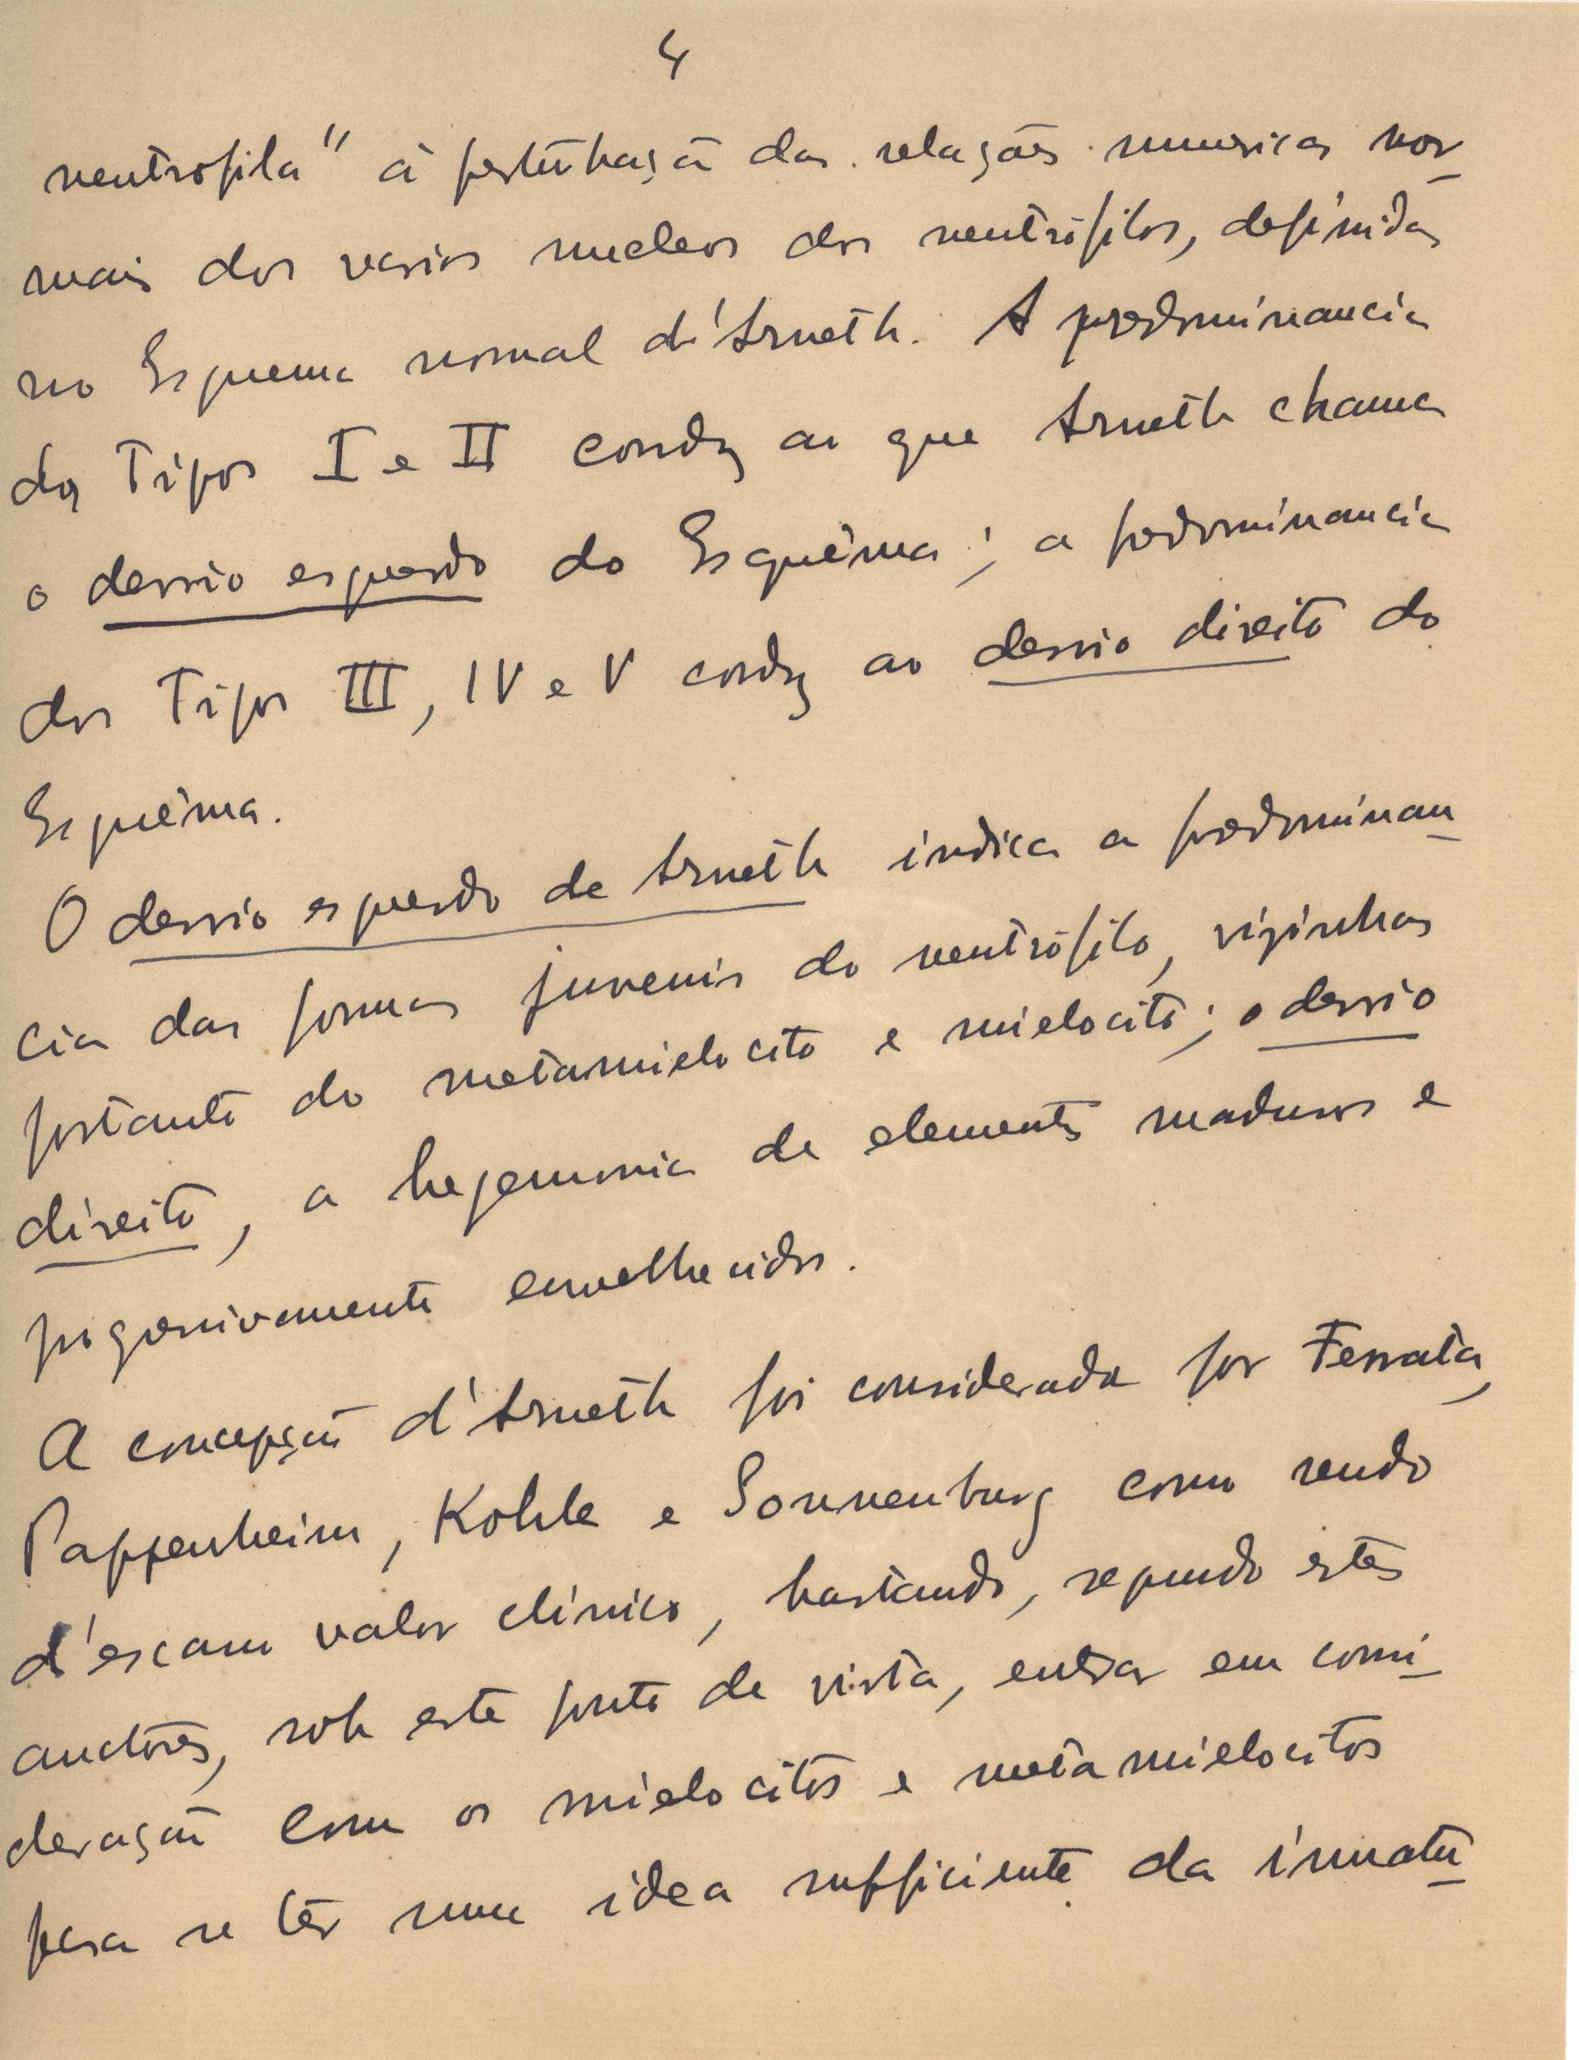 4
neutrofila" á perturbação das relações numericas nor-
mais dos varios nucleos dos neutrófilos, definidas
no Esquema normal d'Arneth. A predominancia
dos Tipos I e II condiz ao que Arneth chama
o desvio esquerdo do Esquêma; a predominancia
dos Tipos III, IV e V condiz ao desvio direito do
Esquêma.
O desvio esquerdo de Arneth indica a predominan-
cia das formas juvenis do neutrófilo, vizinhas
portanto do metamielocito e mielocito; o desvio
direito, a hegemonia de elementos maduros e
progressivamente envelhecidos.
A concepção d'Arneth foi considerada por Ferrata,
Pappenheim, Kohle e Sonnenburg como sendo
d'escasso valor clínico, bastando, segundo estes
auctores, sob este ponto de vista, entrar em consi-
deração com os mielocitos e metamielocitos
para se ter uma idea sufficiente da imatu-